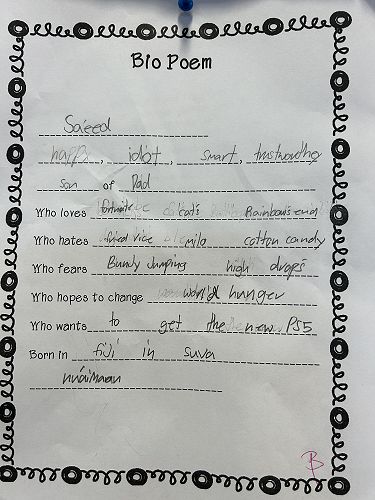 Bio Poem
Saeed
happy, idiot, smart, trustworthy
son of Dad
Who loves fortnite cats Rainbows end
Who hates fried rice milo cotton candy
Who fears Bundy Jumping high drops
Who hopes to change world hunger
Who wants to get the new PS5
Born in fiji in suva
B